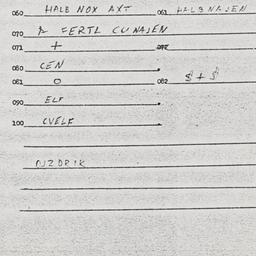 060 HALB NOX AXT 061 HALBNAJEN
070 FERTL CUNAJEN
071 +
080 CEN
081 O 082 S + S
090 ELF
100 CVELF
DJZDRIK